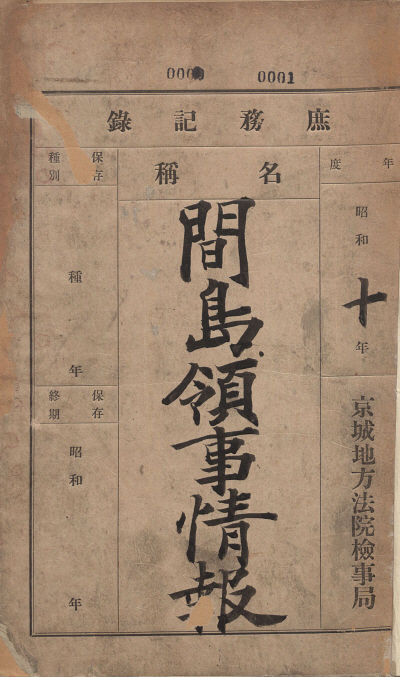 0001
庶務記錄
年度
昭和十年
京城地方法院檢事局
名稱
間島領事情報
保存種別
種
年
保存終期
昭和
年